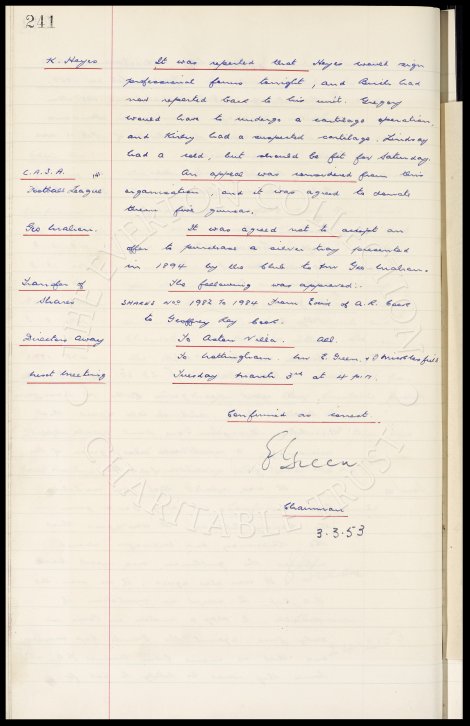 241
K. Hayes It was reported that Hayes would sign
professional forms tonight, and Birch had
now reported back to his unit. Gregory
would have to undergo a cartilage operation
and Kirby had a suspected cartilage. Lindsay
had a cold, but should be fit for Saturday.
C.A.S.A. An appeal was considered from this
Football League organisation and it was agreed to donate
them five guineas.
Geo Mahon. It was agreed not to accept an
offer to purchase a silver tray presented
in 1894 by the Club to Mr Geo Mahon.
Transfer of The following was approved:-
Shares SHARES Nos 1982 To 1984 From Exors of A.R. Cook
to Geoffrey Ray Cook.
Directors Away To Aston Villa. All.
To Nottingham. Mr E. Green.
Next Meeting Tuesday March 3rd at 4 p.m.
Confirmed as correct.
E Green
Chairman
3.3.53
THE EVERTON COLLECTION
CHARITABLE TRUST